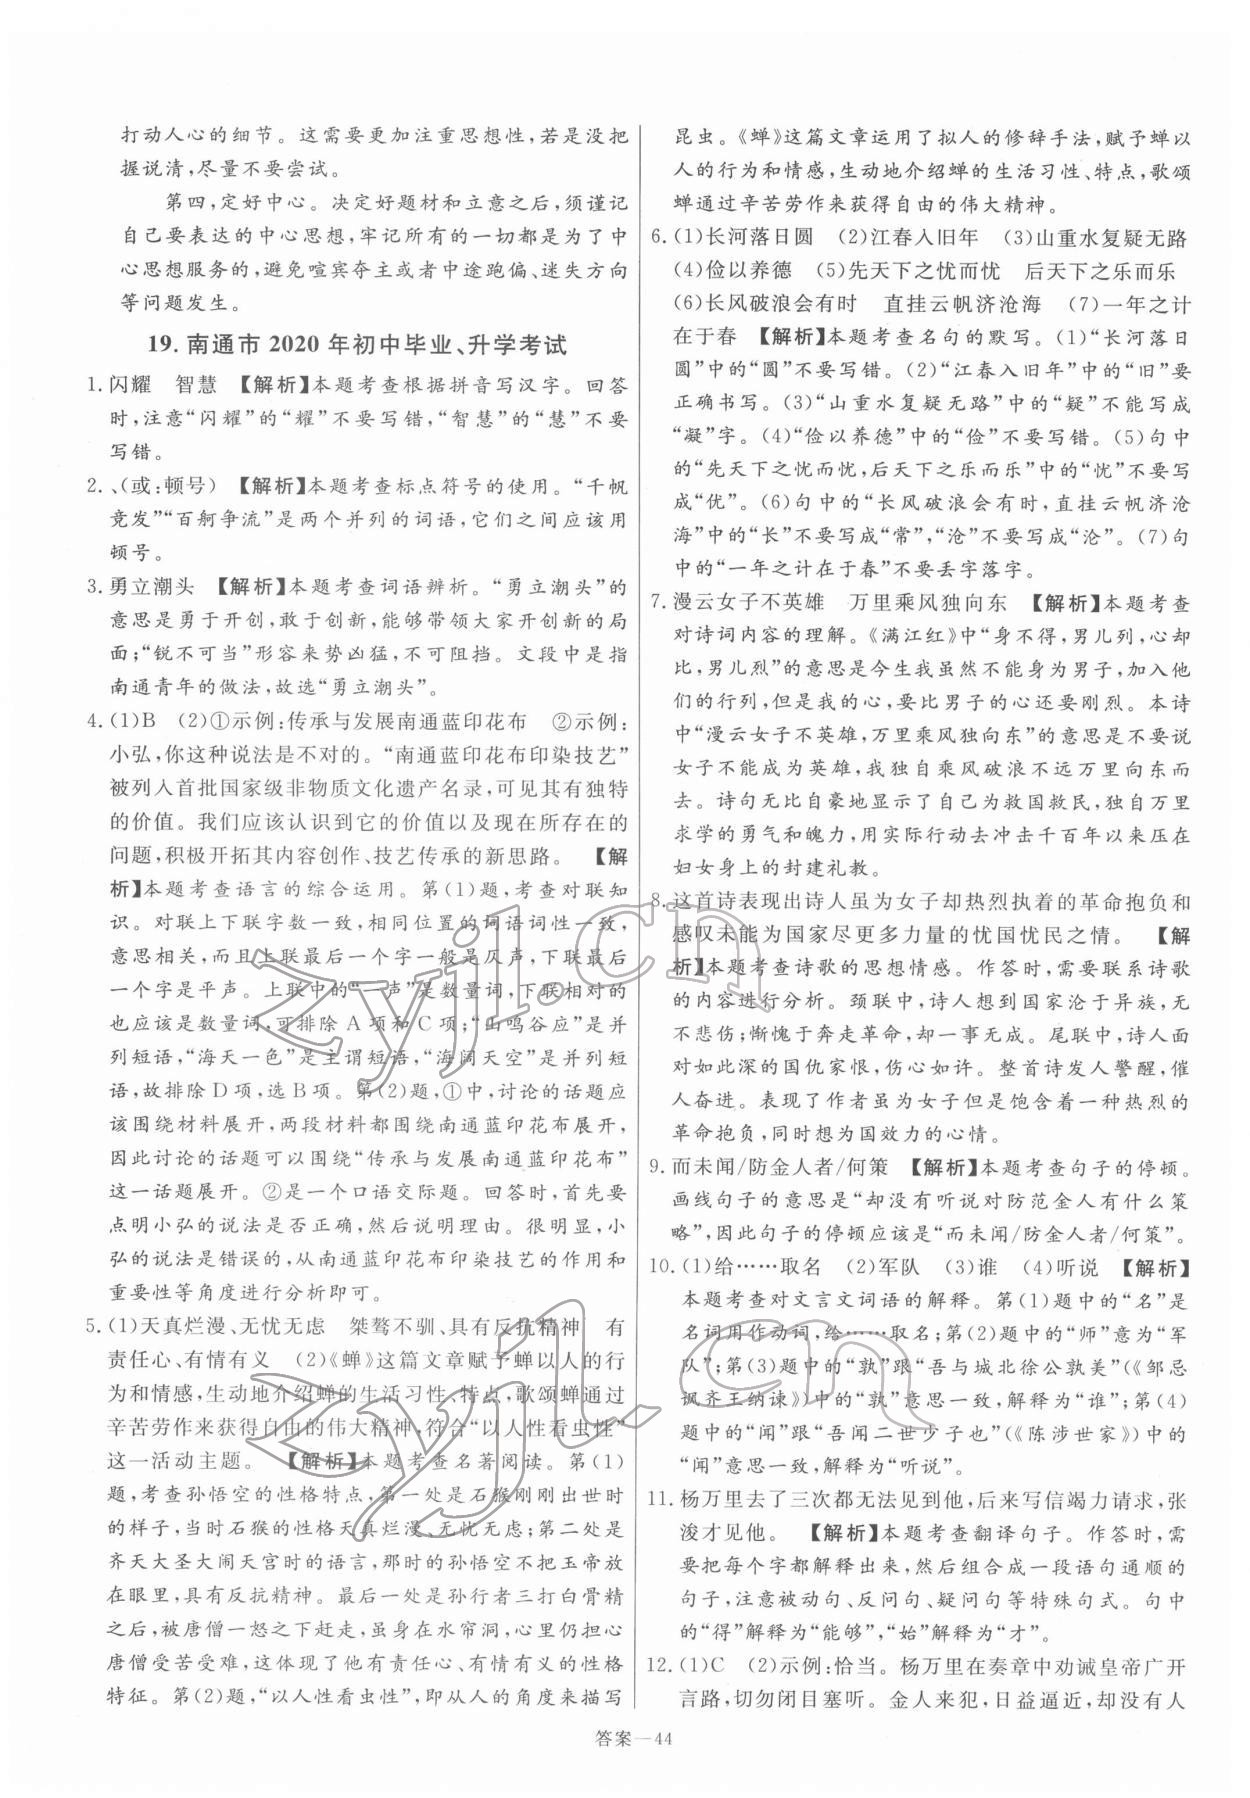 打动人心的细节。这需要更加注重思想性,若是没把
握说清,尽量不要尝试。
第四,定好中心。决定好题材和立意之后,须谨记
自己要表达的中心思想,牢记所有的一切都是为了中
心思想服务的,避免喧宾夺主或者中途跑偏、迷失方向
等问题发生。
19. 南通市 2020 年初中毕业、升学考试
1. 闪耀 智慧 【解析】本题考查根据拼音写汉字。回答
时,注意“闪耀”的“耀”不要写错,“智慧”的“慧”不要
写错。
2. 、(或:顿号) 【解析】本题考查标点符号的使用。“千帆
竞发”“百舸争流”是两个并列的词语,它们之间应该用
顿号。
3. 勇立潮头 【解析】本题考查词语辨析。“勇立潮头”的
意思是勇于开创,敢于创新,能够带领大家开创新的局
面;“锐不可当”形容来势凶猛,不可阻挡。文段中是指
南通青年的做法,故选“勇立潮头”。
4. (1)B (2)①示例:传承与发展南通蓝印花布 ②示例:
小弘,你这种说法是不对的。“南通蓝印花布印染技艺”
被列入首批国家级非物质文化遗产名录,可见其有独特
的价值。我们应该认识到它的价值以及现在所存在的
问题,积极开拓其内容创作、技艺传承的新思路。 【解
析】本题考查语言的综合运用。第(1)题,考查对联知
识。对联上下联字数一致,相同位置的词语词性一致,
意思相关,而且上联最后一个字一般是仄声,下联最后
一个字是平声。上联中的“一声”是数量词,下联相对的
也应该是数量词,可排除A项和C项;“山鸣谷应”是并
列短语,“海天一色”是主谓短语,“海阔天空”是并列短
语,故排除D项,选B项。第(2)题,①中,讨论的话题应
该围绕材料展开,两段材料都围绕南通蓝印花布展开,
因此讨论的话题可以围绕“传承与发展南通蓝印花布”
这一话题展开。②是一个口语交际题。回答时,首先要
点明小弘的说法是否正确,然后说明理由。很明显,小
弘的说法是错误的,从南通蓝印花布印染技艺的作用和
重要性等角度进行分析即可。
5. (1)天真烂漫、无忧无虑 桀骜不驯、具有反抗精神 有
责任心、有情有义 (2)《蝉》这篇文章赋予蝉以人的行
为和情感,生动地介绍蝉的生活习性、特点,歌颂蝉通过
辛苦劳作来获得自由的伟大精神,符合“以人性看虫性”
这一活动主题。 【解析】本题考查名著阅读。第(1)
题,考查孙悟空的性格特点,第一处是石猴刚刚出世时
的样子,当时石猴的性格天真烂漫、无忧无虑;第二处是
齐天大圣大闹天宫时的语言,那时的孙悟空不把玉帝放
在眼里,具有反抗精神。最后一处是孙行者三打白骨精
之后,被唐僧一怒之下赶走,虽身在水帘洞,心里仍担心
唐僧受苦受难,这体现了他有责任心、有情有义的性格
特征。第(2)题,“以人性看虫性”,即从人的角度来描写
昆虫。《蝉》这篇文章运用了拟人的修辞手法,赋予蝉以
人的行为和情感,生动地介绍蝉的生活习性、特点,歌颂
蝉通过辛苦劳作来获得自由的伟大精神。
6. (1)长河落日圆 (2)江春入旧年 (3)山重水复疑无路
(4)俭以养德 (5)先天下之忧而忧 后天下之乐而乐
(6)长风破浪会有时 直挂云帆济沧海 (7)一年之计
在于春 【解析】本题考查名句的默写。(1)“长河落日
圆”中的“圆”不要写错。(2)“江春入旧年”中的“旧”要
正确书写。(3)“山重水复疑无路”中的“疑”不能写成
“凝”字。(4)“俭以养德”中的“俭”不要写错。(5)句中
的“先天下之忧而忧,后天下之乐而乐”中的“忧”不要写
成“优”。(6)句中的“长风破浪会有时,直挂云帆济沧
海”中的“长”不要写成“常”,“沧”不要写成“沦”。(7)句
中的“一年之计在于春”不要丢字落字。
7. 漫云女子不英雄 万里乘风独向东 【解析】本题考查
对诗词内容的理解。《满江红》中“身不得,男儿列,心却
比,男儿烈”的意思是今生我虽然不能身为男子,加入他
们的行列,但是我的心,要比男子的心还要刚烈。本诗
中“漫云女子不英雄,万里乘风独向东”的意思是不要说
女子不能成为英雄,我独自乘风破浪不远万里向东而
去。诗句无比自豪地显示了自己为救国救民,独自万里
求学的勇气和魄力,用实际行动去冲击千百年以来压在
妇女身上的封建礼教。
8. 这首诗表现出诗人虽为女子却热烈执着的革命抱负和
感叹未能为国家尽更多力量的忧国忧民之情。 【解
析】本题考查诗歌的思想情感。作答时,需要联系诗歌
的内容进行分析。颈联中,诗人想到国家沦于异族,无
不悲伤;惭愧于奔走革命,却一事无成。尾联中,诗人面
对如此深的国仇家恨,伤心如许。整首诗发人警醒,催
人奋进。表现了作者虽为女子但是饱含着一种热烈的
革命抱负,同时想为国效力的心情。
9. 而未闻/防金人者/何策 【解析】本题考查句子的停顿。
画线句子的意思是“却没有听说对防范金人有什么策
略”,因此句子的停顿应该是“而未闻/防金人者/何策”。
10. (1)给……取名 (2)军队 (3)谁 (4)听说 【解析】
本题考查对文言文词语的解释。第(1)题中的“名”是
名词用作动词,给……取名;第(2)题中的“师”意为“军
队”;第(3)题中的“孰”跟“吾与城北徐公孰美”(《邹忌
讽齐王纳谏》)中的“孰”意思一致,解释为“谁”;第(4)
题中的“闻”跟“吾闻二世少子也”(《陈涉世家》)中的
“闻”意思一致,解释为“听说”。
11. 杨万里去了三次都无法见到他,后来写信竭力请求,张
浚才见他。 【解析】本题考查翻译句子。作答时,需
要把每个字都解释出来,然后组合成一段语句通顺的
句子,注意被动句、反问句、疑问句等特殊句式。句中
的“得”解释为“能够”,“始”解释为“才”。
12. (1)C (2)示例:恰当。杨万里在奏章中劝诫皇帝广开
言路,切勿闭目塞听。金人来犯,日益逼近,却没有人
答案—44
zyjl.cn
zyjl.cn